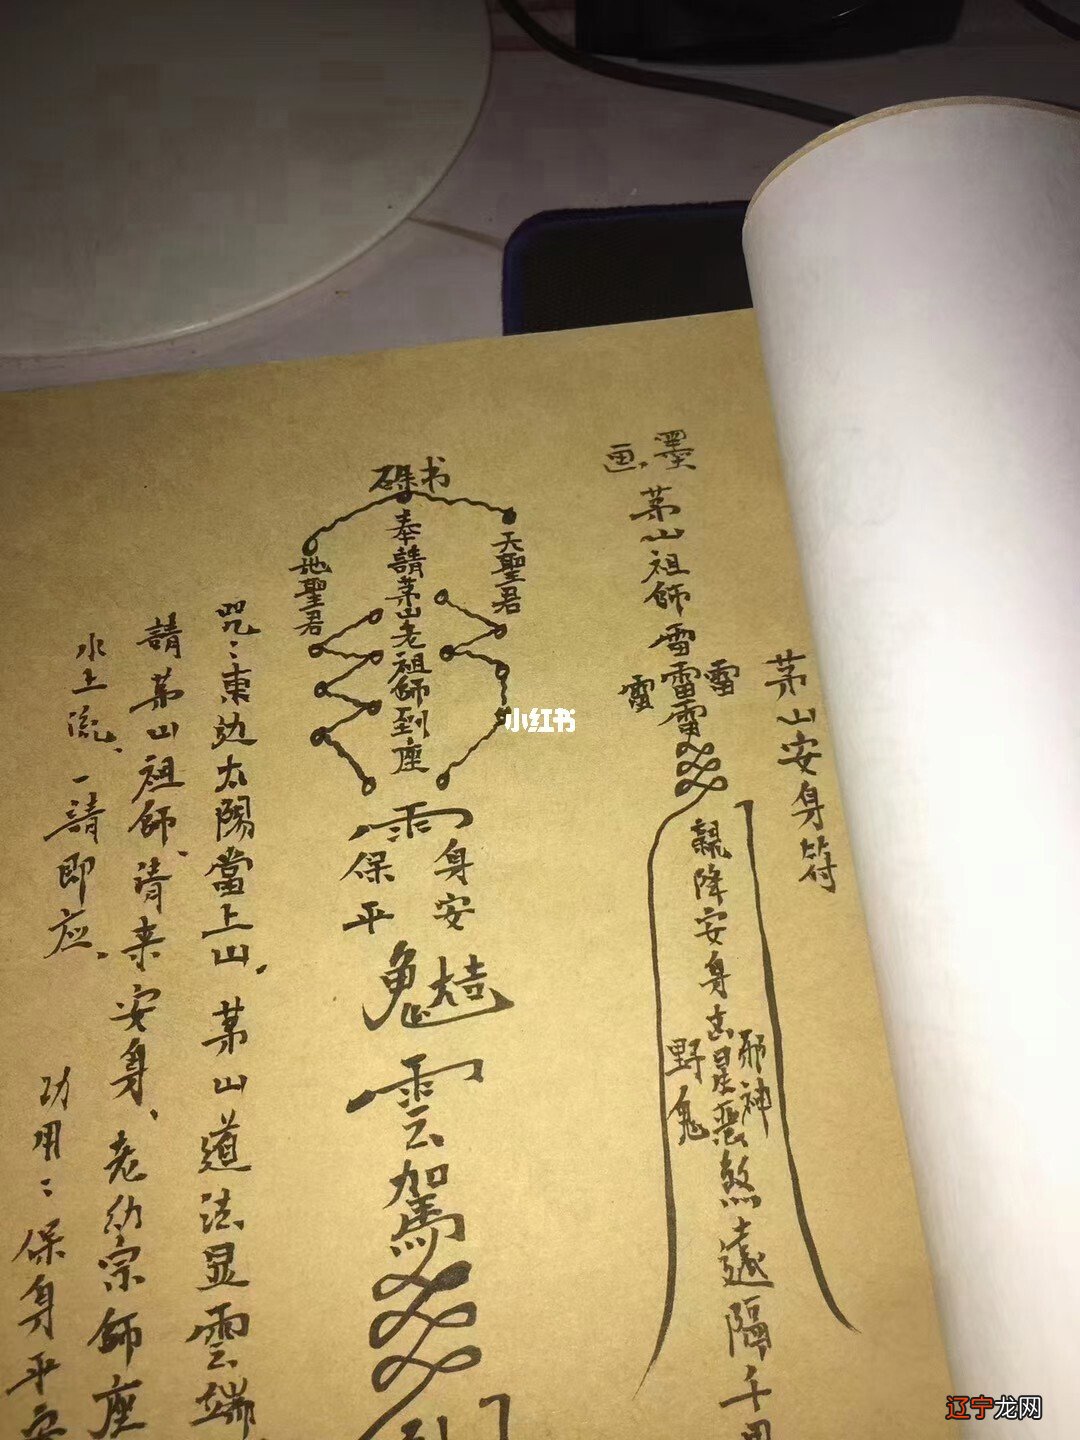 茅山安身符
墨
画
茅山祖師雷
雷雷雷
雷
降安身凶星恶煞遠隔千里
邪神
野鬼
硃书
天聖君
奉請茅山老祖師到座
地聖君
身安
保平
雲駕
咒：東边太陽當上山，茅山道法显雲端
請茅山祖師、请来安身、老幼宗師座
水上流、一請即应、
功用：保身平安
小红书
辽宁龙网